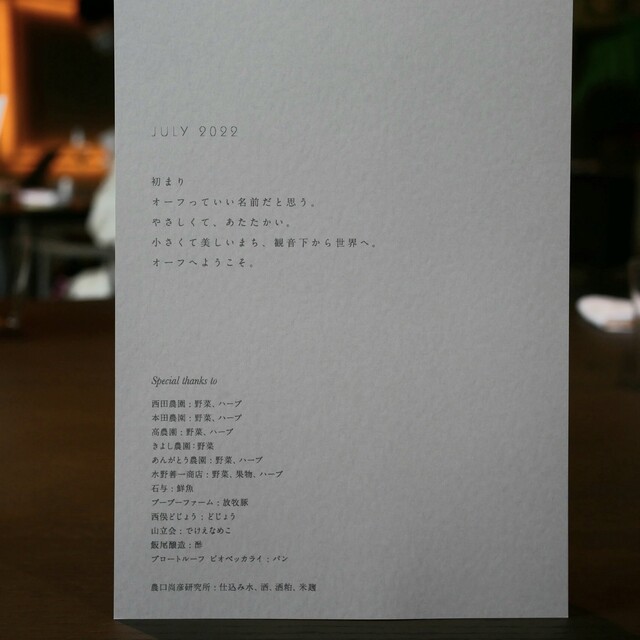 JULY 2022
初まり
オーフっていい名前だと思う。
やさしくて、あたたかい。
小さくて美しいまち、観音下から世界へ。
オーフへようこそ。
Special thanks to
西田農園：野菜、ハーブ
本田農園：野菜、ハーブ
高農園：野菜、ハーブ
きよし農園：野菜
あんがとう農園：野菜、ハーブ
水野善一商店：野菜、果物、ハーブ
石与：鮮魚
ブーブーファーム：放牧豚
西俣どじょう：どじょう
山立会：でけえなめこ
飯尾醸造：酢
ブロートルーフ ビオベッカライ：パン
農口尚彦研究所：仕込み水、酒、酒粕、米麹